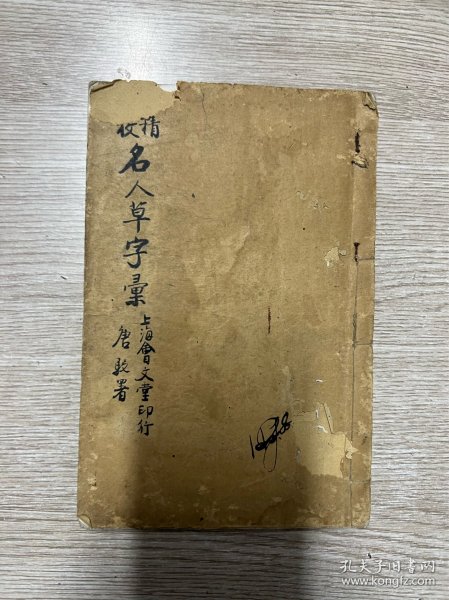 精校
名人草字彙
上海會文堂印行
唐駝署
孔夫子旧书网
www.kongfz.com